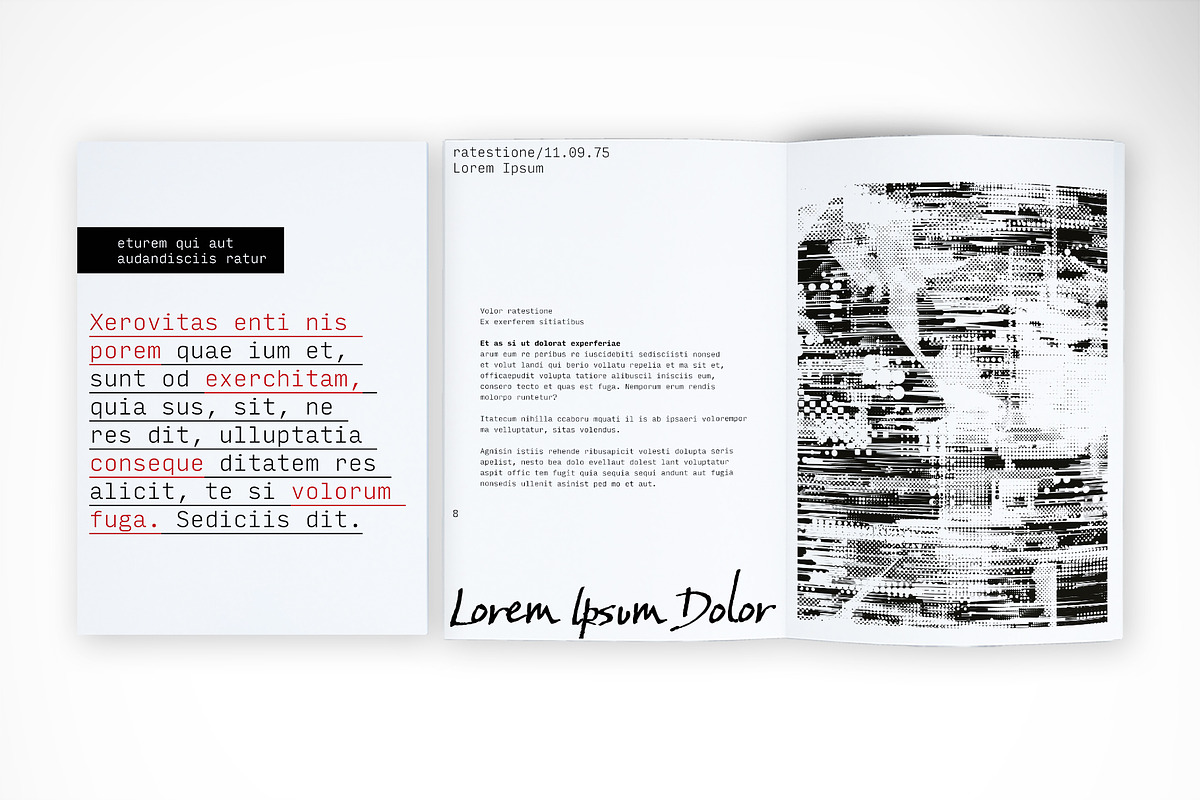 eturem qui aut
audandisciis ratur
Xerovitas enti nis
porem quae ium et,
sunt od exerchitam,
quia sus, sit, ne
res dit, ulluptatia
conseque ditatem res
alicit, te si volorum
fuga. Sediciis dit.
ratestione/11.09.75
Lorem Ipsum
Volor ratestione
Ex exerferem sitiatibus
Et as si ut dolorat experferiae
arum eum re peribus re iuscidebiti sedisciisti nonsed
et volut landi qui berio vollatu repelia et ma sit et,
officaepudit volupta tatiore alibuscil inisciis eum,
consero tecto et quas est fuga. Nemporum erum rendis
molorpo runtetur?
Itatecum nihilla ccaboru mquati il is ab ipsaeri volorempor
ma velluptatur, sitas volendus.
Agnisin istiis rehende ribusapicit volesti dolupta seris
apelist, nesto bea dolo evellaut dolest lant voluptatur
aspit offic tem fugit quia sequia sequi andunt aut fugia
nonsedis ullenit asinist ped mo et aut.
8
Lorem Ipsum Dolor